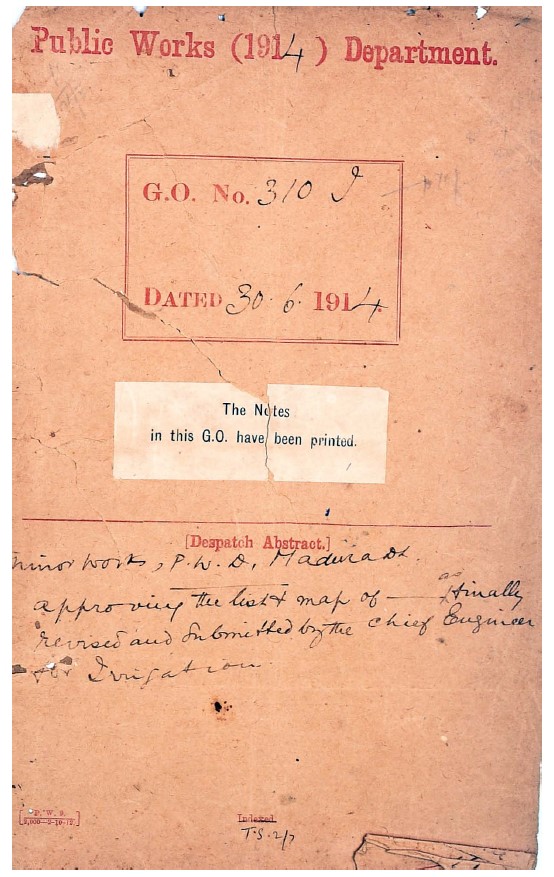 Public Works (1914) Department.
G.O. No. 310 I
DATED 30.6.1914.
The Notes
in this G.O. have been printed.
[Despatch Abstract.]
Minor works, P.W.D., Madura Dt.
approving the list & map of — as finally
revised and submitted by the Chief Engineer
for Irrigation
P. W. 9.
Indexed.
T.S. 2/7